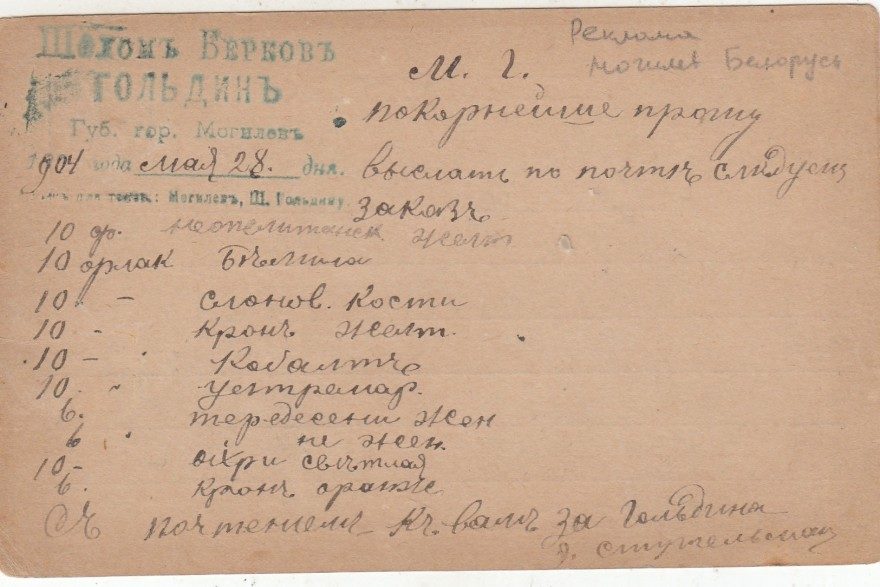 Шоломъ Берковъ
ГОЛЬДИНЪ
Губ. гор. Могилевъ
1904 года мая 28. дня.
для : Могилевъ, Ш. Гольдину
Реклама
Могилев Белорусь
М. Г.
покорнейше прошу
выслать по почтѣ следующ
заказъ
10 ф. неополитанск желт
10 орлак Бѣлила
10 - слонов. кости
10 - кронъ желт.
10 - Кобалтъ
10. " устремар.
6. тередесени жон
6 " не жен.
10 - охри свѣтлая
6. кронъ оранже
Съ почтением къ вамъ за Гольдина